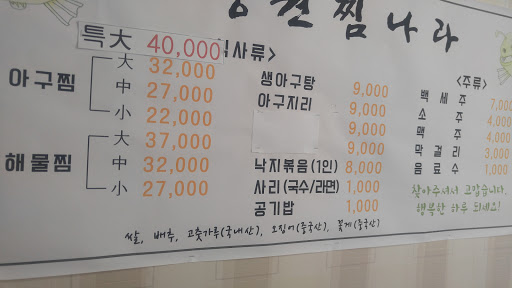 찜나라
특大 40,000
식사류>
<주류>
아구찜
大 32,000
中 27,000
小 22,000
해물찜
大 37,000
中 32,000
小 27,000
생아구탕 9,000
아구지리 9,000
9,000
9,000
낙지볶음(1인) 8,000
사리(국수/라면) 1,000
공기밥 1,000
백세주 7,000
소주 4,000
맥주 4,000
막걸리 3,000
음료수 1,000
찾아주셔서 고맙습니다.
행복한 하루 되세요!
쌀, 배추, 고춧가루(국내산), 오징어(중국산), 꽃게(중국산)